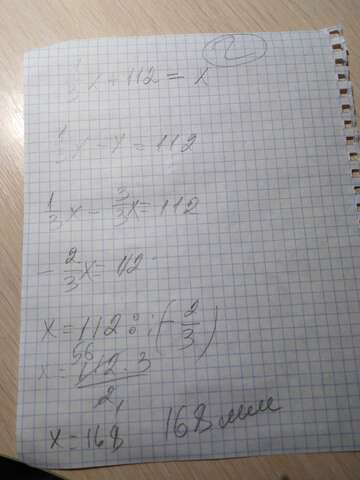 2
x + 112 = x
1/3 x - x = 112
1/3 x - 3/3 x = 112
- 2/3 x = 112
x = 112 : (- 2/3)
56
x = 112 · 3 / 2
1
x = 168 168 мин